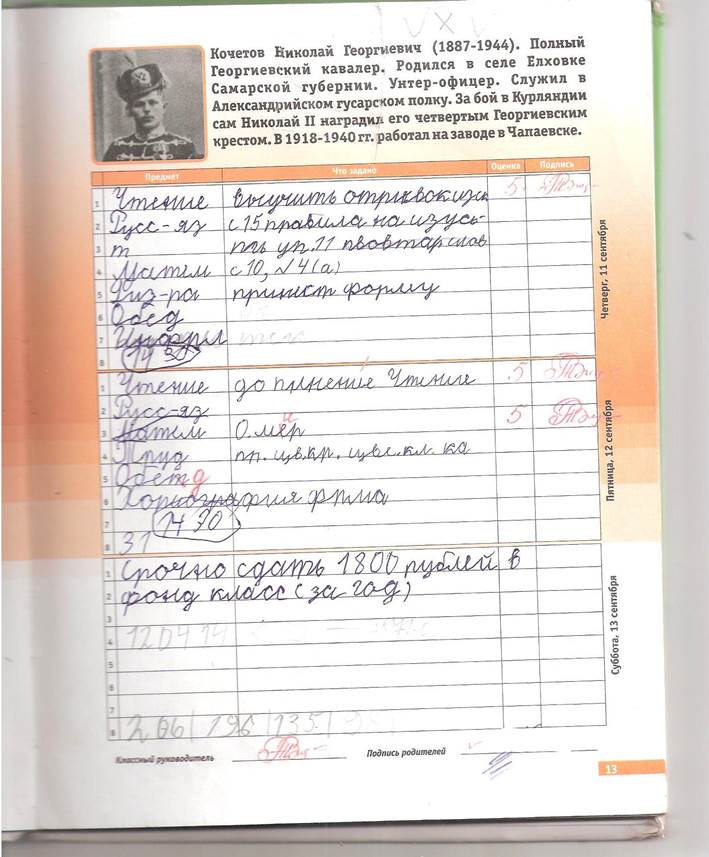 Кочетов Николай Георгиевич (1887-1944). Полный
Георгиевский кавалер. Родился в селе Елховке
Самарской губернии. Унтер-офицер. Служил в
Александрийском гусарском полку. За бой в Курляндии
сам Николай II наградил его четвертым Георгиевским
крестом. В 1918-1940 гг. работал на заводе в Чапаевске.
Предмет Что задано Оценка Подпись
1 Чтение выучить 5
2 Русс-яз с 15 правила на изусь-
3 т ть уп. 11
4 Матем с 10, №4(а)
5 Физ-ра принест форму
6 Обед
7 Информ
8 14 30
Четверг, 11 сентября
1 Чтение до Чтение 5
2 Русс-яз 5
3 Матем
4 Труд пп. цв.кр. цвс.кл. ка
5 Обетд
6 Хориография
7 14 30
8 31
Пятница, 12 сентября
1 Срочно сдать 1800 рублей в
2 фонд класс (за год)
3
4 120414
5
6
7
8 206 196 135
Суббота, 13 сентября
Классный руководитель Подпись родителей
13